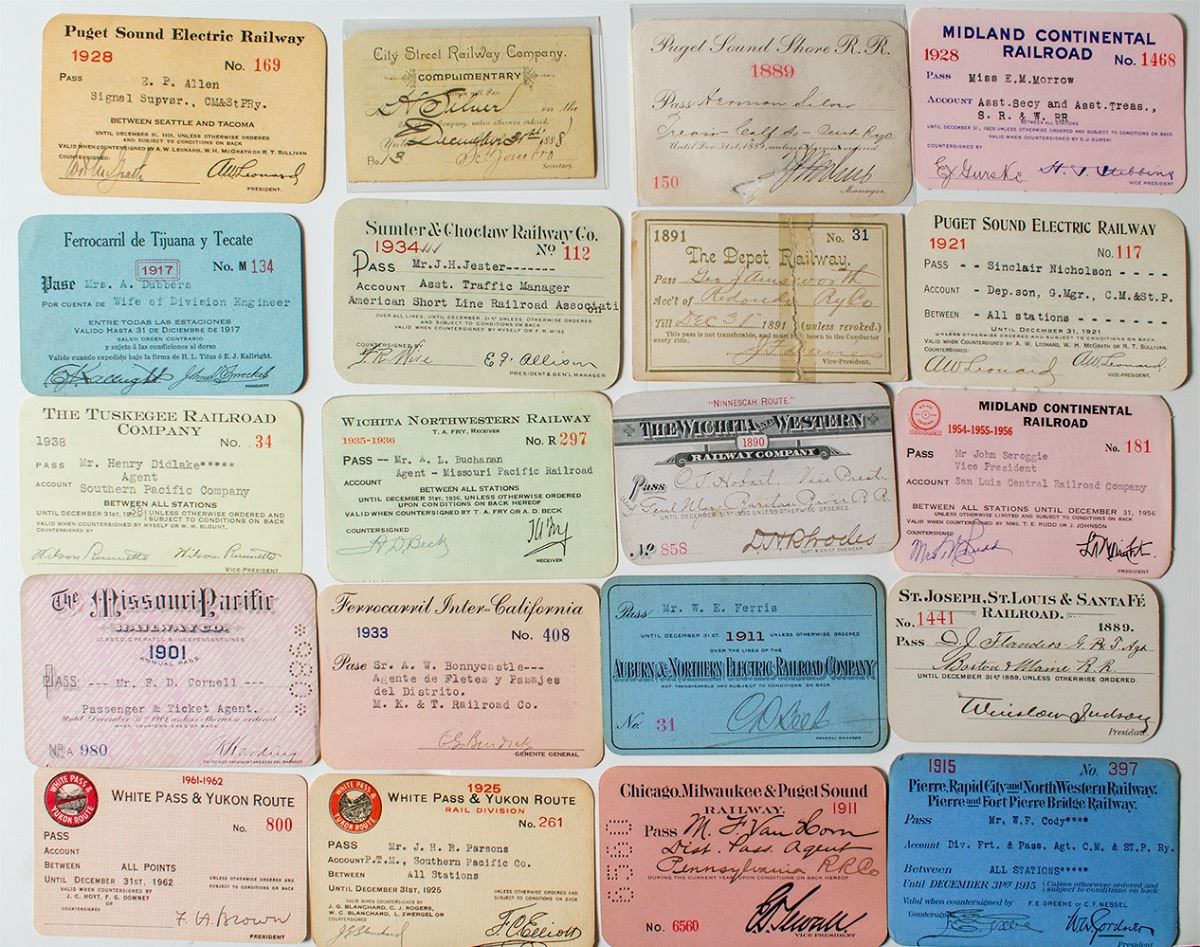 Puget Sound Electric Railway
1928
No. 169
PASS E. P. Allen
Signal Supvsr., CM&StPRy.
BETWEEN SEATTLE AND TACOMA
UNTIL DECEMBER 31, 1928, UNLESS OTHERWISE ORDERED
AND SUBJECT TO CONDITIONS ON BACK
VALID WHEN COUNTERSIGNED BY A. W. LEONARD, W. H. McGRATH OR R. T. SULLIVAN
COUNTERSIGNED:
AWLeonard
PRESIDENT.
City Street Railway Company.
COMPLIMENTARY
H Silver on the
Company, unless otherwise ordered,
Until December 31st 1888
No. 13
Secretary.
Puget Sound Shore R. R.
1889
Pass Herman Silver
Until Dec. 31st, 1889, unless otherwise ordered.
150
Manager.
MIDLAND CONTINENTAL
RAILROAD
1928
No. 1468
PASS Miss E.M.Morrow
ACCOUNT Asst.Secy and Asst.Treas.,
S. R. & W. RR
BETWEEN ALL STATIONS
UNTIL DECEMBER 31, 1928 UNLESS OTHERWISE ORDERED AND SUBJECT TO CONDITIONS ON BACK
VALID WHEN COUNTERSIGNED BY E.J. GURSKE
COUNTERSIGNED BY
EJ Gurske H. S. Stebbins
VICE PRESIDENT
Ferrocarril de Tijuana y Tecate
1917
No. M 134
Pase Mrs. A. Dubbers
POR CUENTA DE Wife of Division Engineer
ENTRE TODAS LAS ESTACIONES
VALIDO HASTA 31 DE DICIEMBRE DE 1917
SALVO ORDEN CONTRARIO
y sujeto á las condiciones al dorso
Valido cuando expedido bajo la firma de H. L. Titus ó E. J. Kallright.
PRESIDENT
Sumter & Choctaw Railway Co.
1934
No 112
PASS Mr.J.H.Jester-------
ACCOUNT Asst. Traffic Manager
American Short Line Railroad Association
OVER ALL LINES, UNTIL DECEMBER 31ST UNLESS OTHERWISE ORDERED
AND SUBJECT TO CONDITIONS ON BACK
VALID WHEN COUNTERSIGNED BY MYSELF OR F.R.WISE
COUNTERSIGNED
F.R.Wise E.F. Allison
PRESIDENT & GEN'L MANAGER
1891
No. 31
The Depot Railway.
Pass Geo J Ainsworth
Acc't of Redondo Ry Co
Till Dec 31st 1891 (unless revoked.)
This pass is not transferable, and must be shown to the Conductor
every ride.
Vice-President.
PUGET SOUND ELECTRIC RAILWAY
1921
No. 117
PASS - - Sinclair Nicholson - - - -
ACCOUNT - Dep.son, G.Mgr., C.M.&St.P.
BETWEEN - All stations - - - - - -
UNTIL DECEMBER 31, 1921
UNLESS OTHERWISE ORDERED AND SUBJECT TO CONDITIONS ON BACK.
VALID WHEN COUNTERSIGNED BY A. W. LEONARD, W. H. McGRATH OR R. T. SULLIVAN.
COUNTERSIGNED:
AWLeonard AWLeonard
VICE-PRESIDENT.
THE TUSKEGEE RAILROAD
COMPANY
1938
No. 34
PASS Mr. Henry Didlake*****
Agent
ACCOUNT Southern Pacific Company
BETWEEN ALL STATIONS
UNTIL DECEMBER 31, 1938 UNLESS OTHERWISE ORDERED AND
SUBJECT TO CONDITIONS ON BACK
VALID WHEN COUNTERSIGNED BY MYSELF OR W. M. BLOUNT.
COUNTERSIGNED BY
VICE-PRESIDENT
WICHITA NORTHWESTERN RAILWAY
T. A. FRY, RECEIVER
1935-1936
No. R 297
PASS -- Mr. A. L. Buchanan
Agent - Missouri Pacific Railroad
BETWEEN ALL STATIONS
UNTIL DECEMBER 31ST, 1936, UNLESS OTHERWISE ORDERED
UPON CONDITIONS ON BACK HEREOF
VALID WHEN COUNTERSIGNED BY T. A. FRY OR A. D. BECK
COUNTERSIGNED
A.D.Beck TAFry
RECEIVER
"NINNESCAH ROUTE."
THE WICHITA AND WESTERN
1890
RAILWAY COMPANY
Pass
UNTIL DECEMBER 31ST 1890 UNLESS OTHERWISE ORDERED
No 858
SUPT & CHIEF ENGINEER.
MIDLAND CONTINENTAL
RAILROAD
1954-1955-1956
No. 181
PASS Mr John Scroggie
Vice President
ACCOUNT San Luis Central Railroad Company
BETWEEN ALL STATIONS UNTIL DECEMBER 31, 1956
UNLESS OTHERWISE LIMITED AND SUBJECT TO CONDITIONS ON BACK
VALID WHEN COUNTERSIGNED BY MRS. T. E. RUDD OR J. JOHNSON
COUNTERSIGNED
PRESIDENT
The Missouri Pacific
RAILWAY CO.
LEASED, OPERATED & INDEPENDENT LINES
1901
ANNUAL PASS.
PASS --- Mr. F. D. Cornell ---
Passenger & Ticket Agent.
Until December 31st 1901, unless otherwise ordered
WHEN COUNTERSIGNED ON BACK
No A 980
Ferrocarril Inter-California
1933
No. 408
Pase Sr. A. W. Bonnycastle---
Agente de Fletes y Pasajes
del Distrito.
M. K. & T. Railroad Co.
GERENTE GENERAL
Pass Mr. W. E. Ferris
UNTIL DECEMBER 31ST 1911 UNLESS OTHERWISE ORDERED
OVER THE LINES OF THE
AUBURN & NORTHERN ELECTRIC RAILROAD COMPANY
NOT TRANSFERABLE AND SUBJECT TO CONDITIONS ON BACK
No. 31
GENERAL MANAGER
ST. JOSEPH, ST. LOUIS & SANTA FÉ
RAILROAD.
No. 1441
1889.
Pass D.J. Flanders G.P.T. Agt
Boston & Maine R.R.
UNTIL DECEMBER 31ST 1889, UNLESS OTHERWISE ORDERED.
Winslow Judson
President.
1961-1962
WHITE PASS &
YUKON ROUTE
WHITE PASS & YUKON ROUTE
No. 800
PASS
ACCOUNT
BETWEEN ALL POINTS
UNTIL DECEMBER 31ST, 1962 UNLESS OTHERWISE ORDERED AND
SUBJECT TO CONDITIONS ON BACK
VALID WHEN COUNTERSIGNED BY
J. C. HOYT, F. G. DOWNEY
OR
COUNTERSIGNED
F. H. Brown
PRESIDENT
WHITE PASS &
YUKON ROUTE
1925
WHITE PASS & YUKON ROUTE
RAIL DIVISION
No. 261
PASS Mr. J. H. R. Parsons
ACCOUNT P.T.M., Southern Pacific Co.
BETWEEN All Stations
UNTIL DECEMBER 31ST, 1925 UNLESS OTHERWISE ORDERED AND
SUBJECT TO CONDITIONS ON BACK
VALID WHEN COUNTERSIGNED BY
J. G. BLANCHARD, C. J. ROGERS,
W. C. BLANCHARD, L. ZWERGEL OR
COUNTERSIGNED
Chicago, Milwaukee & Puget Sound
RAILWAY. 1911
Pass M. F. Van Horn
Dist. Pass. Agent
Pennsylvania R.R.Co
DURING THE CURRENT YEAR UPON CONDITIONS ON BACK
No. 6560
VICE PRESIDENT
1915
No. 397
Pierre, Rapid City and North Western Railway.
Pierre and Fort Pierre Bridge Railway.
Pass Mr. W.F. Cody****
Account Div. Frt. & Pass. Agt. C.M. & ST.P. Ry.
Between ALL STATIONS*****
Until DECEMBER 31st 1915 Unless otherwise ordered and
subject to conditions on back
Valid when countersigned by F. E. GREENE or C. F. NESSEL
Countersigned
President